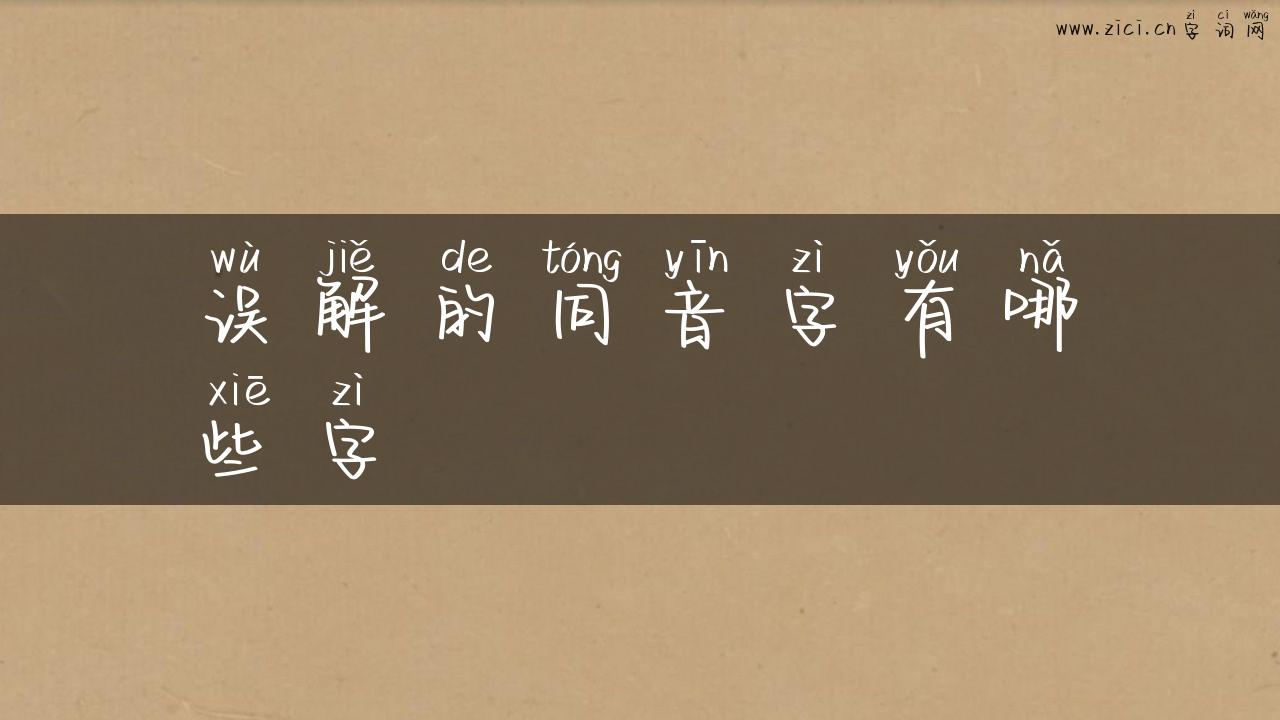 zì cí wǎng
www.zici.cn 字词网
wù jiě de tóng yīn zì yǒu nǎ
误解的同音字有哪
xiē zì
些字